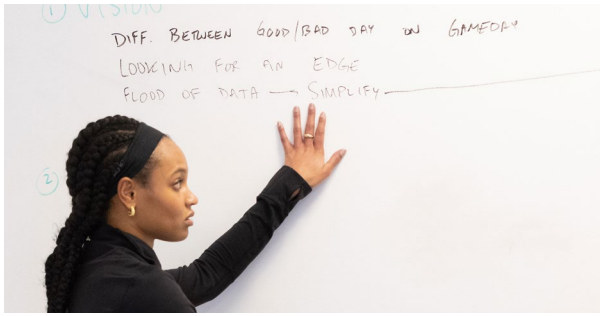 ① VISION
DIFF. BETWEEN GOOD/BAD DAY ON GAMEDAY
LOOKING FOR AN EDGE
FLOOD OF DATA → SIMPLIFY
②